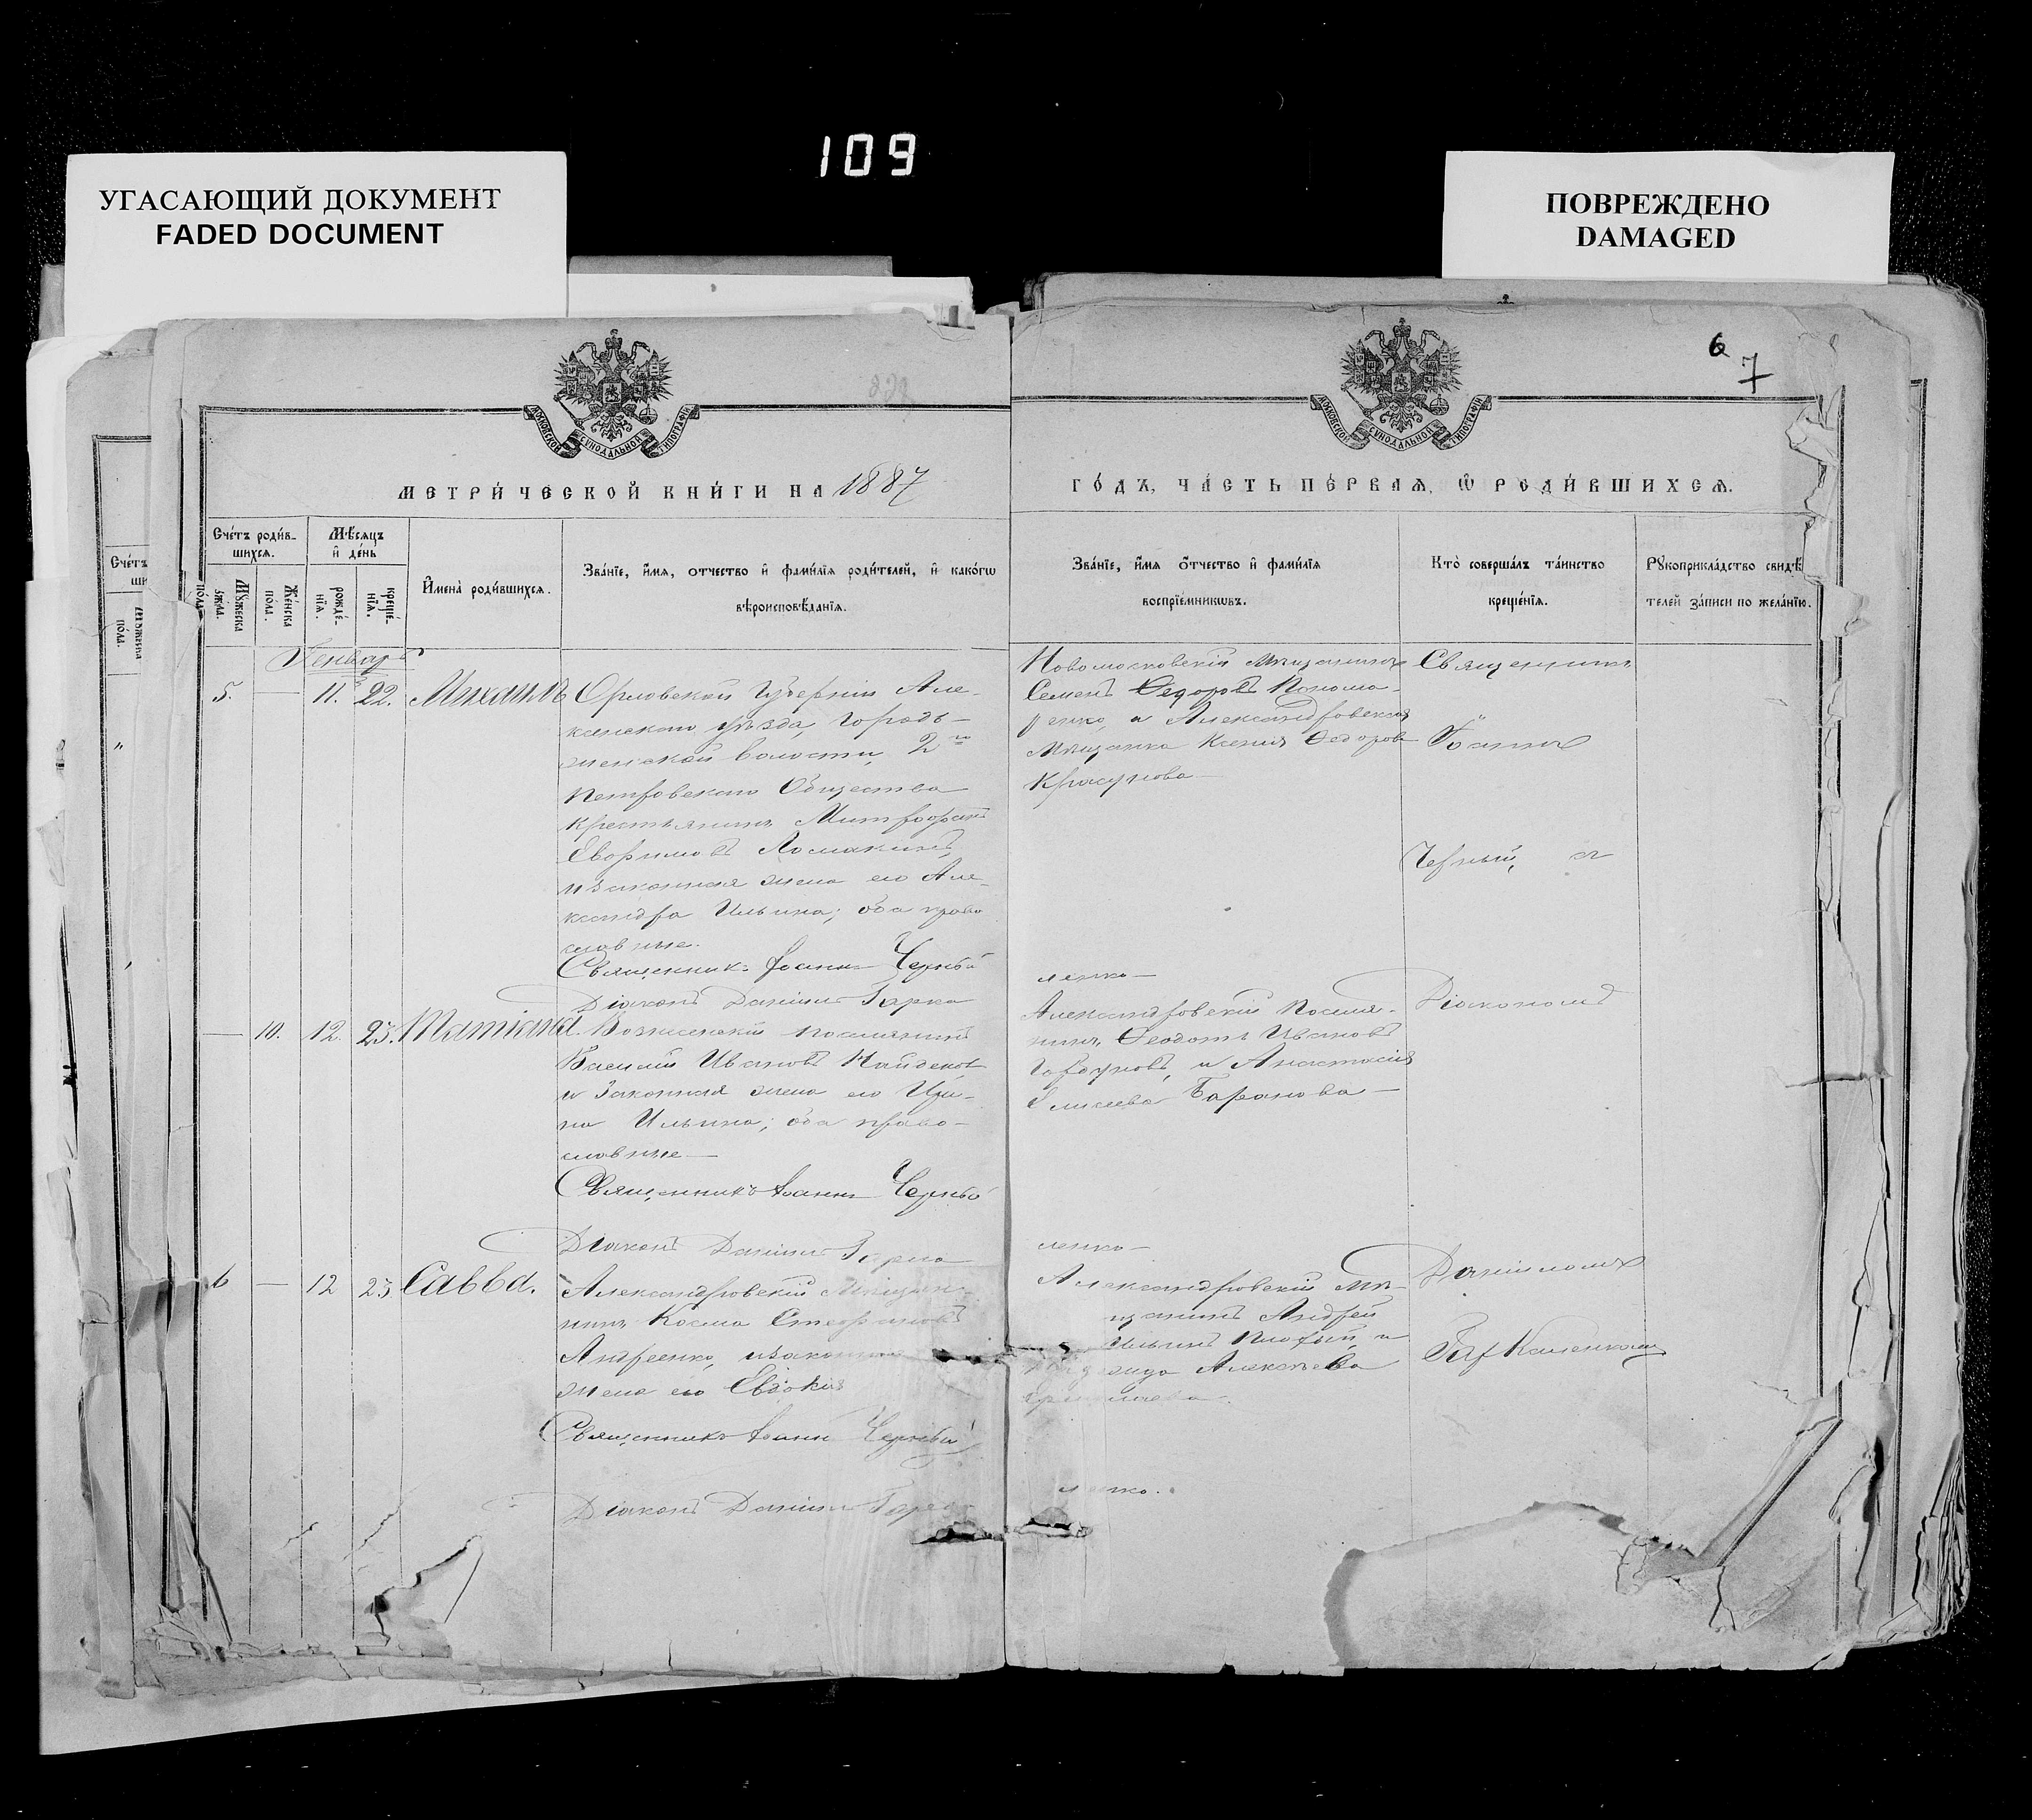 109
УГАСАЮЩИЙ ДОКУМЕНТ
FADED DOCUMENT
ПОВРЕЖДЕНО
DAMAGED
6
7
МОСКОВСКОЙ СѴНОДАЛЬНОЙ ТИПОГРАФІИ
МОСКОВСКОЙ СѴНОДАЛЬНОЙ ТИПОГРАФІИ
МЕТРИ́ЧЕСКОЙ КНИ́ГИ НА 1887
ГО́ДЪ, ЧА́СТЬ ПЕ́РВАЯ, Ѡ РОДИ́ВШИХСЯ.
Сче́тъ роди́в-
шихся.
Мѣ́сяцъ
и҆ де́нь
Мꙋ́жеска
по́ла.
Же́нска
по́ла.
рожде́-
нїя.
креще́-
нїя.
И҆мена̀ роди́вшихся.
Зва́нїе, и҆́мя, о́тчество и҆ фами́лїя роди́телей, и҆ како́гѡ
вѣроисповѣ́данїя.
Зва́нїе, и҆́мя о́тчество и҆ фами́лїя
воспрїе́мникѡвъ.
Кто̀ соверша́лъ та́инство
креще́нїя.
Рꙋкоприкла́дство свидѣ́-
телей за́писи по жела́нїю.
Генварь
5. — 11. 22. Михаилъ
Орловской Губерніи Але-
ксинскаго уѣзда,
волости, 2го
Петровскаго Общества
крестьянинъ Митрофанъ
Ломакинъ,
и законная жена его Але-
ксандра Ильина; оба право
славные.
Священникъ Іоаннъ Черный
Діаконъ Даніилъ Гарка
ленко—
Новомосковскій мѣщанинъ
Семенъ Ѳедоровъ Понома-
ренко, и Александровская
мѣщанка Ксенія Ѳедорова
Красунова—
Священникъ
Іоаннъ
Черный, съ
— 10. 12. 23. Татіана.
Вознесенскій поселянинъ
Василій Ивановъ Найденов
и Законная жена его Ири-
на Ильина; оба право-
славные—
Священникъ Іоаннъ Черный
Діаконъ Даніилъ Гарка
ленко—
Александровскій Поселя-
нинъ Ѳеодотъ Ивановъ
Горбуновъ, и Анастасія
Елисеева Баранова—
Діакономъ
6 — 12 23. Савва.
Александровскій Мѣщан-
нинъ Косма Стефановъ
Андреенко, и законная
жена его Евдокія
Священникъ Іоаннъ Черный
Діаконъ Даніилъ Гарка
ленко.
Александровскій мѣ-
щанинъ Андрей
Ильинъ и
Алексѣева
Даніиломъ
Гаркаленкомъ